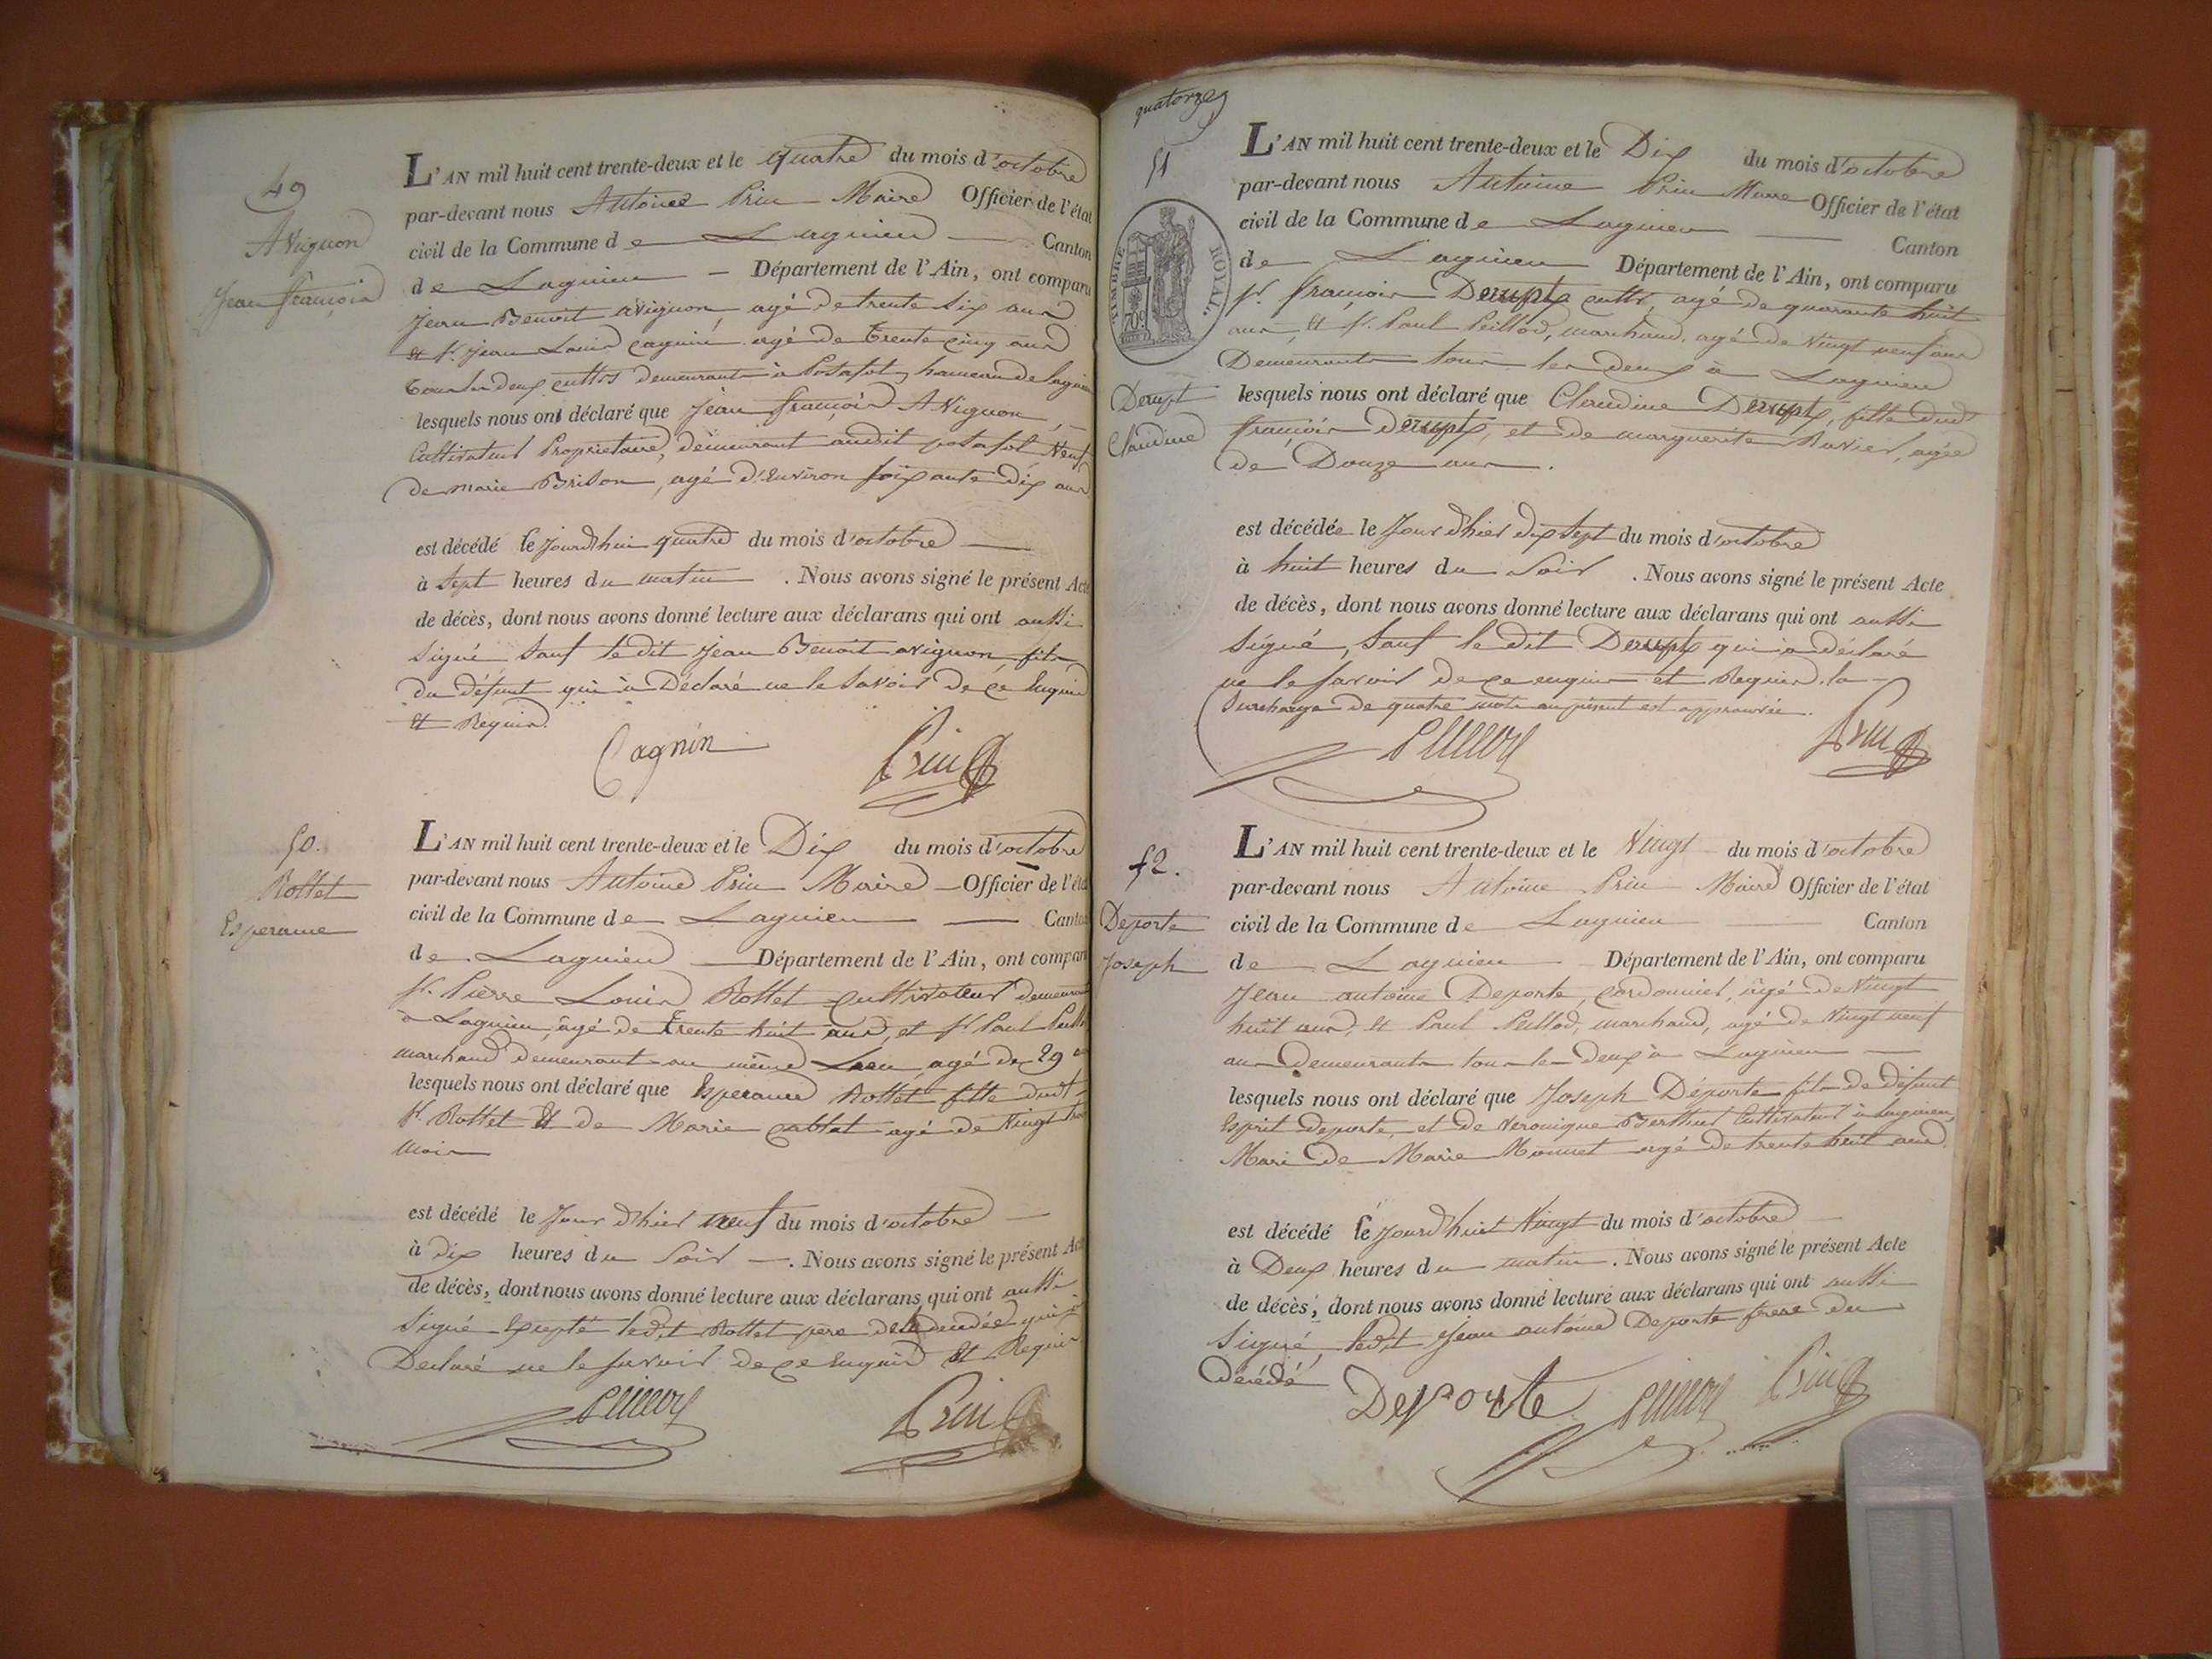 49
Avignon
Jean françois
L'AN mil huit cent trente-deux et le quatre du mois d'octobre
par-devant nous Antoine Prin Maire Officier de l'état
civil de la Commune de Lagnieu Canton
de Lagnieu Département de l'Ain, ont comparu
Jean Benoit avignon, agé de trente six ans
et sr. Jean Louis Cagnin, agé de trente cinq ans
tous les deux cultrs demeurants à Posafol, hameau de lagnieu
lesquels nous ont déclaré que Jean françois Avignon,
Cultivateur Proprietaire, demeurant audit posafol Veuf
de marie Brison, agé d'environ soixante dix ans
est décédé le jourd'hui quatre du mois d'octobre
à Sept heures du matin . Nous avons signé le présent Acte
de décès, dont nous avons donné lecture aux déclarans qui ont aussi
signé sauf le dit Jean Benoit avignon fils
du défunt qui à Déclaré ne le savoir de ce Enquis
et Requis
Cagnin Prin
50.
Rottet
Esperance
L'AN mil huit cent trente-deux et le Dix du mois d'octobre
par-devant nous Antoine Prin Maire Officier de l'éta
civil de la Commune de Lagnieu Canto
de Lagnieu Département de l'Ain, ont compar
sr. Pierre Louis Rottet Cultivateur demeurant
à Lagnieu, âgé de trente huit ans, et sr Paul Peillod
marchand demeurant au même Lieu, agé de 29 ans
lesquels nous ont déclaré que Esperance Rottet fille dudt
sr. Rottet et de Marie agé de Vingt trois
mois
est décédé le Jour d'hier neuf du mois d'octobre
à dix heures du soir . Nous avons signé le présent Act
de décès, dont nous avons donné lecture aux déclarans qui ont aussi
signé Excepté ledit Rottet père de la décédée qui à
Declaré ne le savoir de ce Enquis et Requis
Peillod Prin
quatorze
51
TIMBRE ROYAL
Derupt
Claudine
L'AN mil huit cent trente-deux et le Dix du mois d'octobre
par-devant nous Antoine Prin Maire Officier de l'état
civil de la Commune de Lagnieu Canton
de Lagnieu Département de l'Ain, ont comparu
sr. françois Derupt cultr, agé de quarante huit
ans, et sr. Paul Peillod, marchand, agé de Vingt neuf ans
Demeurants tous les deux à Lagnieu
lesquels nous ont déclaré que Claudine Derupt, fille dudt
françois Derupt, et de marguerite Ravier, agée
de Douze ans.
est décédée le Jour d'hier dix sept du mois d'octobre
à huit heures du soir . Nous avons signé le présent Acte
de décès, dont nous avons donné lecture aux déclarans qui ont aussi
signé, sauf le dit Derupt qui à déclaré
ne le savoir de ce enquis et Requis. la
surcharge de quatre mots au présent est approuvée.
Peillod Prin
52.
Deporte
Joseph
L'AN mil huit cent trente-deux et le Vingt du mois d'octobre
par-devant nous Antoine Prin Maire Officier de l'état
civil de la Commune de Lagnieu Canton
de Lagnieu Département de l'Ain, ont comparu
Jean antoine Deporte, Cordonnier, âgé de Vingt
huit ans, et Paul Peillod, marchand, agé de Vingt neuf
ans Demeurants tous les deux à Lagnieu
lesquels nous ont déclaré que Joseph Déporte fils de défunt
Esprit Deporte, et de Veronique Berthet Cultivateur à Lagnieu,
Mari de Marie Monnet agé de trente huit ans.
est décédé le jourd'huit Vingt du mois d'octobre
à Deux heures du matin . Nous avons signé le présent Acte
de décès, dont nous avons donné lecture aux déclarans qui ont aussi
signé, ledit Jean antoine Deporte frere du
décédé
Deporte Peillod Prin